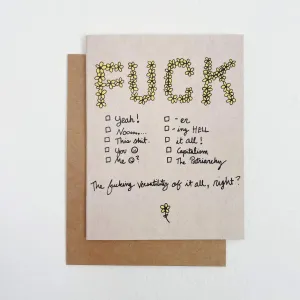 FUCK
Yeah!
Nooo....
This shit.
You ☺
Me ☹?
- er
- ing HELL
it all!
Capitalism
The Patriarchy
The fucking versatility of it all, right?